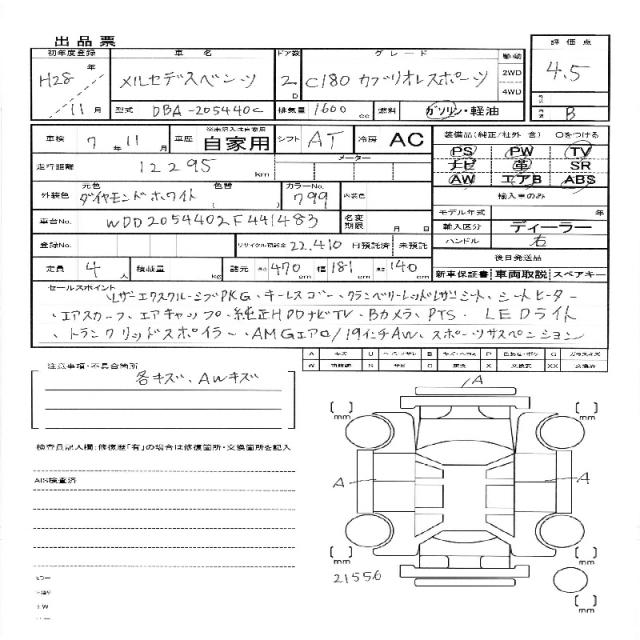 出品票
初年度登録 車名 ドア数 グレード 車歴 評価点
H28年 メルセデスベンツ 2D C180 カブリオレスポーツ 2WD 4.5
4WD
11月 型式 DBA-205440C 排気量 1600cc 燃料 ガソリン・軽油 B
車検 7年11月 車歴 ※未記入は自家用 自家用 シフト AT 冷房 AC 装備品(純正/社外 含) Oをつける
PS PW TV
走行距離 12295km メーター ナビ 革 SR
AW エアB ABS
外装色 元色 ダイヤモンドホワイト 色替 カラーNo. 799 内装色 輸入車のみ
モデル年式 年
車台No. WDD2054402F441483 名変期限 月 日 輸入区分 ディーラー
登録No. リサイクル預託金 22,410 日預託済 未預託 ハンドル 右
後日発送品
定員 4人 積載量 kg 諸元 長さ 470cm 幅 181cm 高さ 140cm 新車保証書 車両取説 スペアキー
セールスポイント
レザーエクスクルーシブPKG、キーレスゴー、クランベリーレッドレザーシート、シートヒーター
エアスカーフ、エアキャップ、純正HDDナビTV、Bカメラ、PTS、LEDライト
トランクリッドスポイラー、AMGエアロ/19インチAW、スポーツサスペンション
注意事項・不具合箇所
各キズ、AWキズ
A
mm mm
検査員記入欄:修復歴「有」の場合は修復箇所・交換箇所を記入
AIS検査済
A A
mm mm
21556
mm